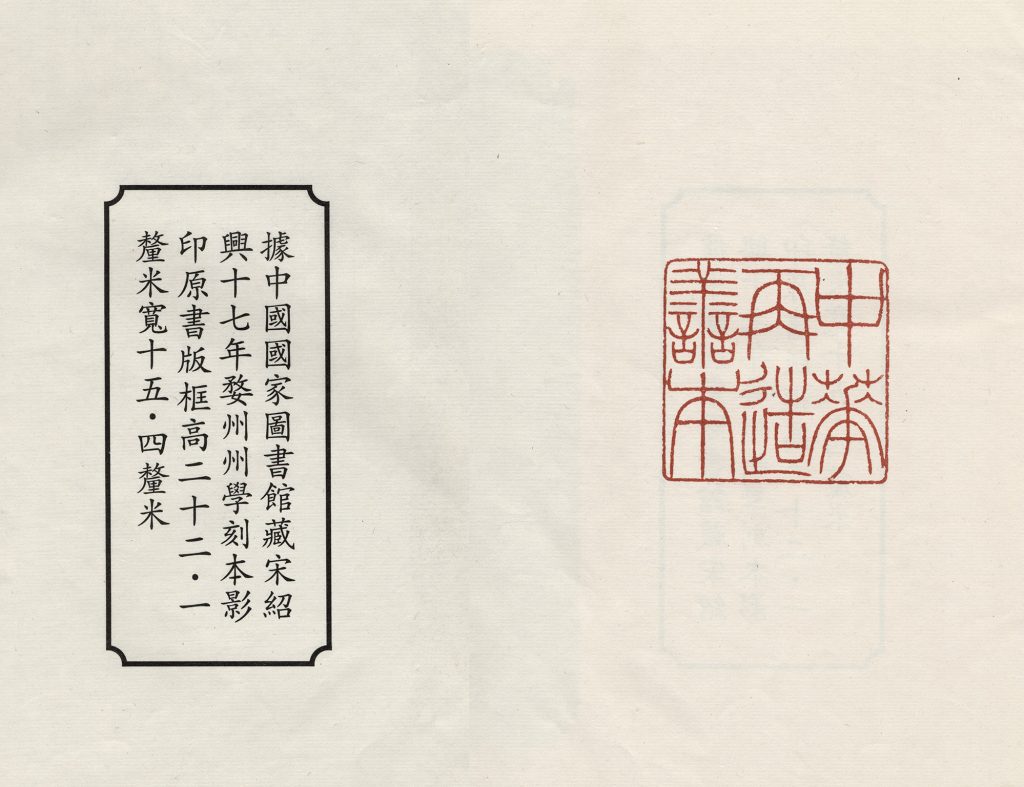 中華
再造
善本
據中國國家圖書館藏宋紹
興十七年婺州州學刻本影
印原書版框高二十二·一
釐米寬十五·四釐米